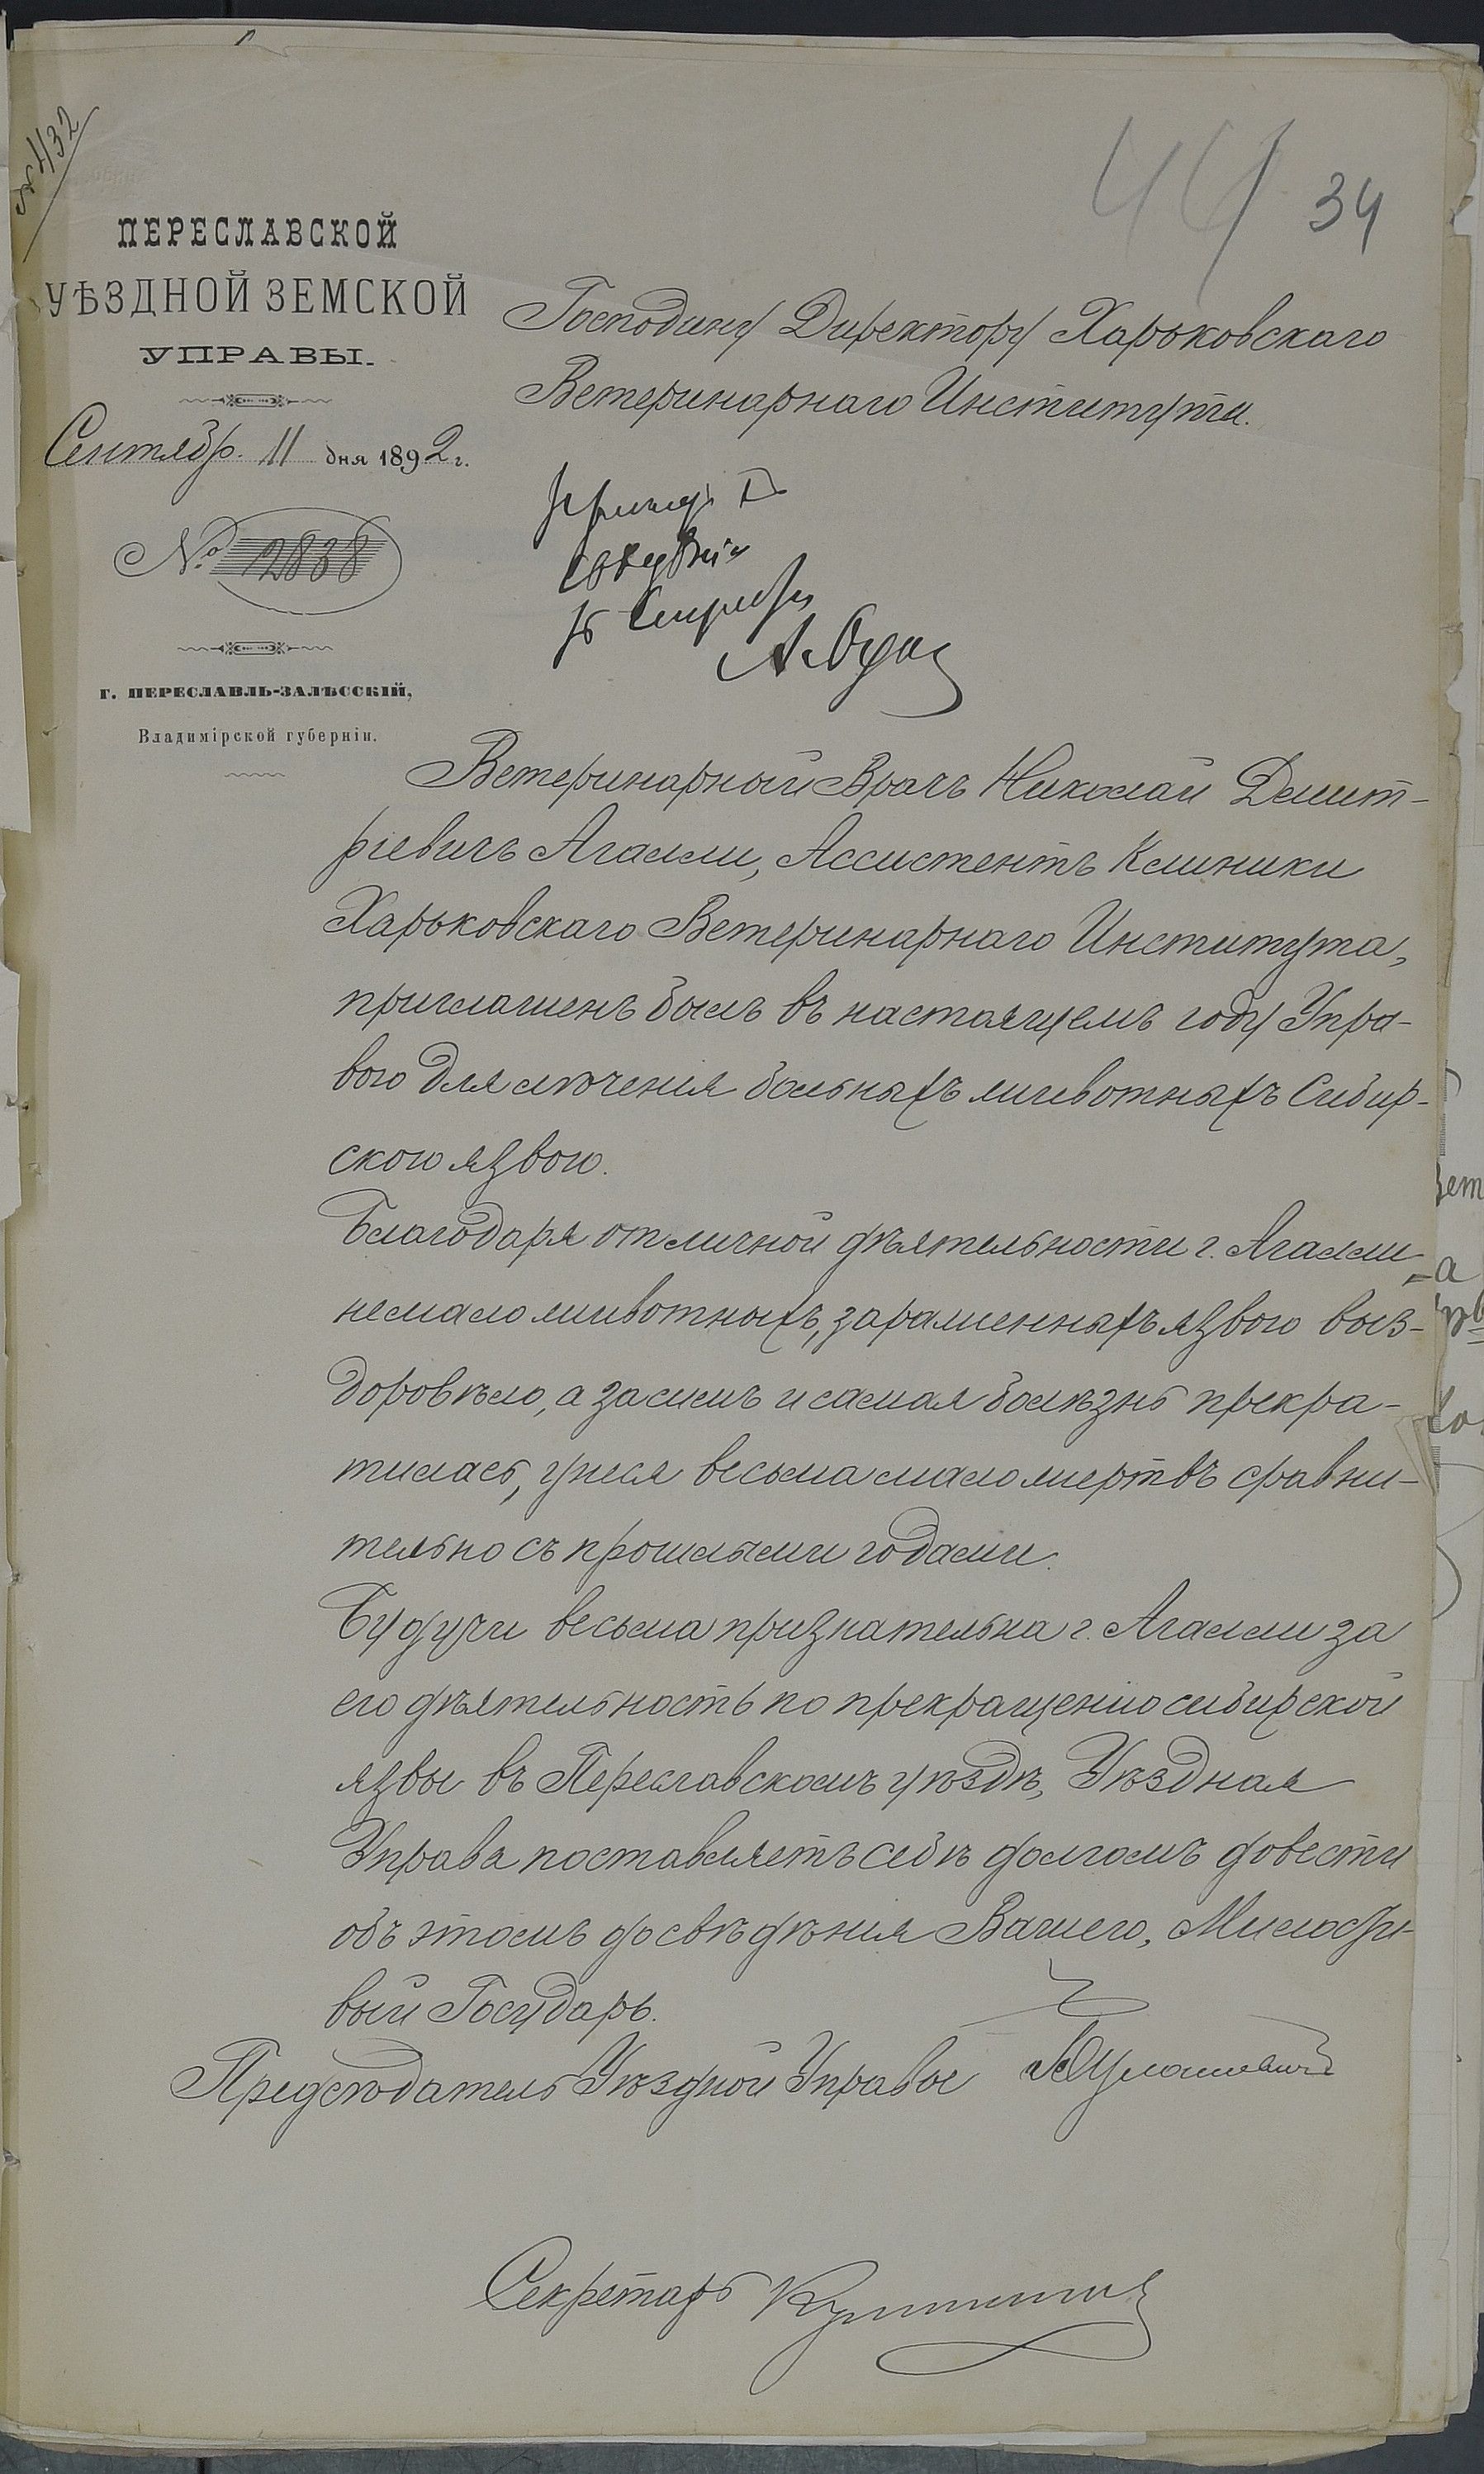 № 432
44 34
ПЕРЕСЛАВСКОЙ
УѢЗДНОЙ ЗЕМСКОЙ
УПРАВЫ.
Сентябр. 11 дня 1892 г.
№ 2838
г. ПЕРЕСЛАВЛЬ-ЗАЛѢССКІЙ,
Владимірской губерніи.
Господину Директору Харьковскаго
Ветеринарнаго Института.
Ветеринарный Врачъ Николай Дмит-
ріевичъ Агалли, Ассистентъ Клиники
Харьковскаго Ветеринарнаго Института,
приглашенъ былъ въ настоящемъ году Упра-
вою для лѣченія больныхъ животныхъ Сибир-
скою язвою.
Благодаря отличной дѣятельности г. Агалли
немало животныхъ, зараженныхъ язвою выз-
доровѣло, а засимъ и самая болѣзнь прекра-
тилась, унеся весьма мало жертвъ сравни-
тельно съ прошлыми годами.
Будучи весьма признательна г. Агалли за
его дѣятельность по прекращенію сибирской
язвы въ Переславскомъ уѣздѣ, Уѣздная
Управа поставляетъ себѣ долгомъ довести
объ этомъ до свѣдѣнія Вашего, Милости-
вый Государь.
Предсѣдатель Уѣздной Управы
Секретарь